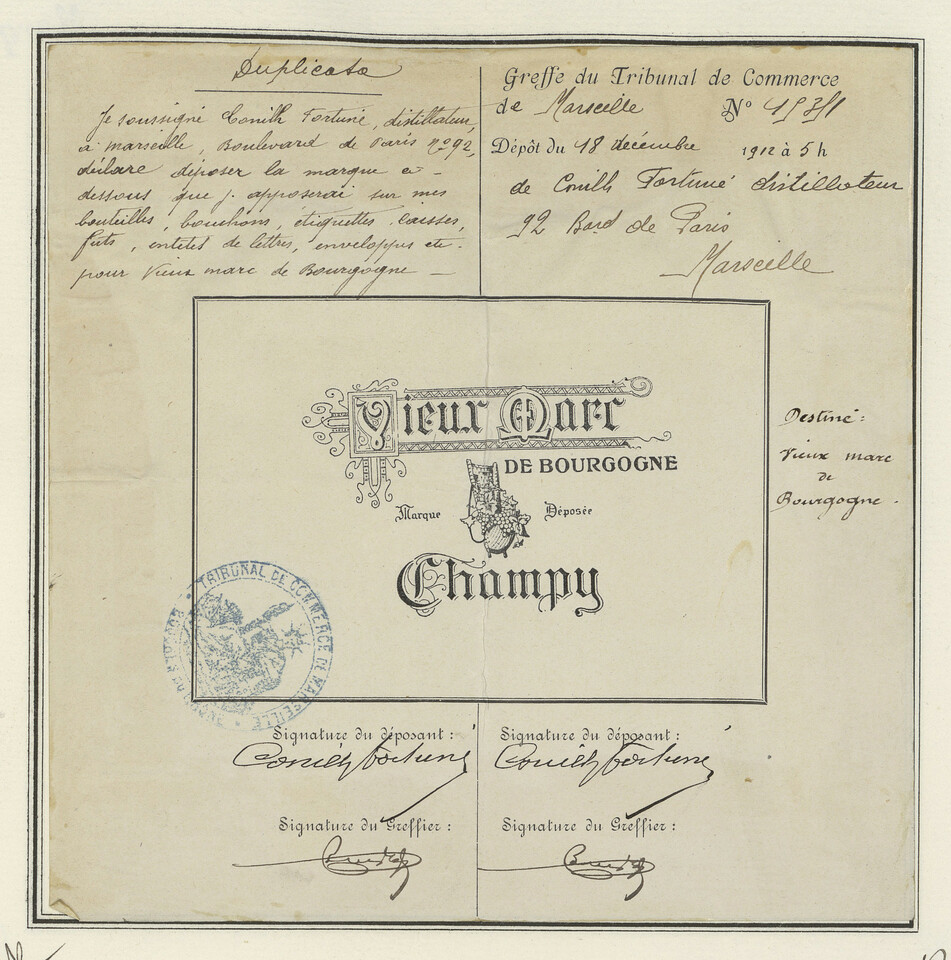 Duplicata
Je soussigné Conilh Fortuné, distillateur,
à marseille, Boulevard de Paris n° 92,
déclare déposer la marque ci-
dessous que j'apposerai sur mes
bouteilles, bouchons, étiquettes, caisses,
futs, entetes de lettres, enveloppes etc.
pour Vieux marc de Bourgogne —
Greffe du Tribunal de Commerce
de Marseille N°
Dépôt du 18 décembre 1912 à 5 h
de Conilh Fortuné distillateur
92 Bard de Paris
Marseille
Vieux Marc
DE BOURGOGNE
Marque Déposée
Champy
Destiné:
Vieux marc
de
Bourgogne.
TRIBUNAL DE COMMERCE DE MARSEILLE
Signature du déposant : Signature du déposant :
Conilh Fortuné Conilh Fortuné
Signature du Greffier : Signature du Greffier :